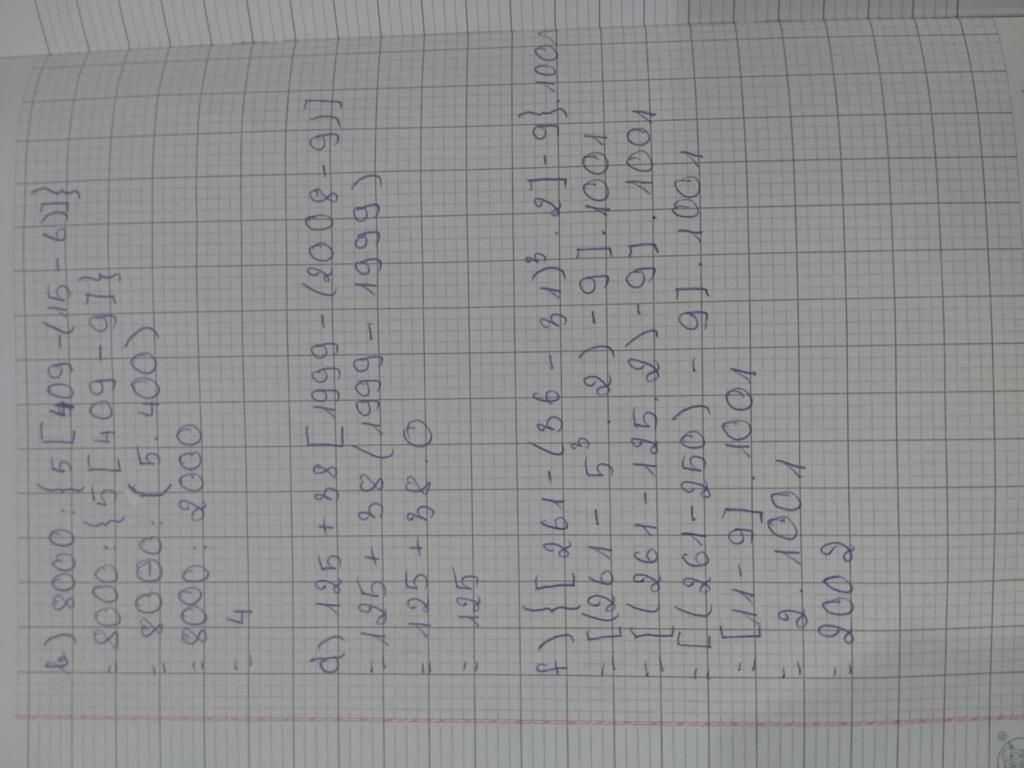 b) 8000 : {5 [409 - (15 - 6)]}
= 8000 : {5 [409 - 9]}
= 8000 : (5 . 400)
= 8000 : 2000
= 4
d) 125 + 38 [1999 - (2008 - 9)]
= 125 + 38 (1999 - 1999)
= 125 + 38 . 0
= 125
f) {[261 - (36 - 31)³ . 2] - 9} 1001
= [(261 - 5³ . 2) - 9] . 1001
= [(261 - 125 . 2) - 9] . 1001
= [(261 - 250) - 9] . 1001
= [11 - 9] . 1001
= 2 . 1001
= 2002